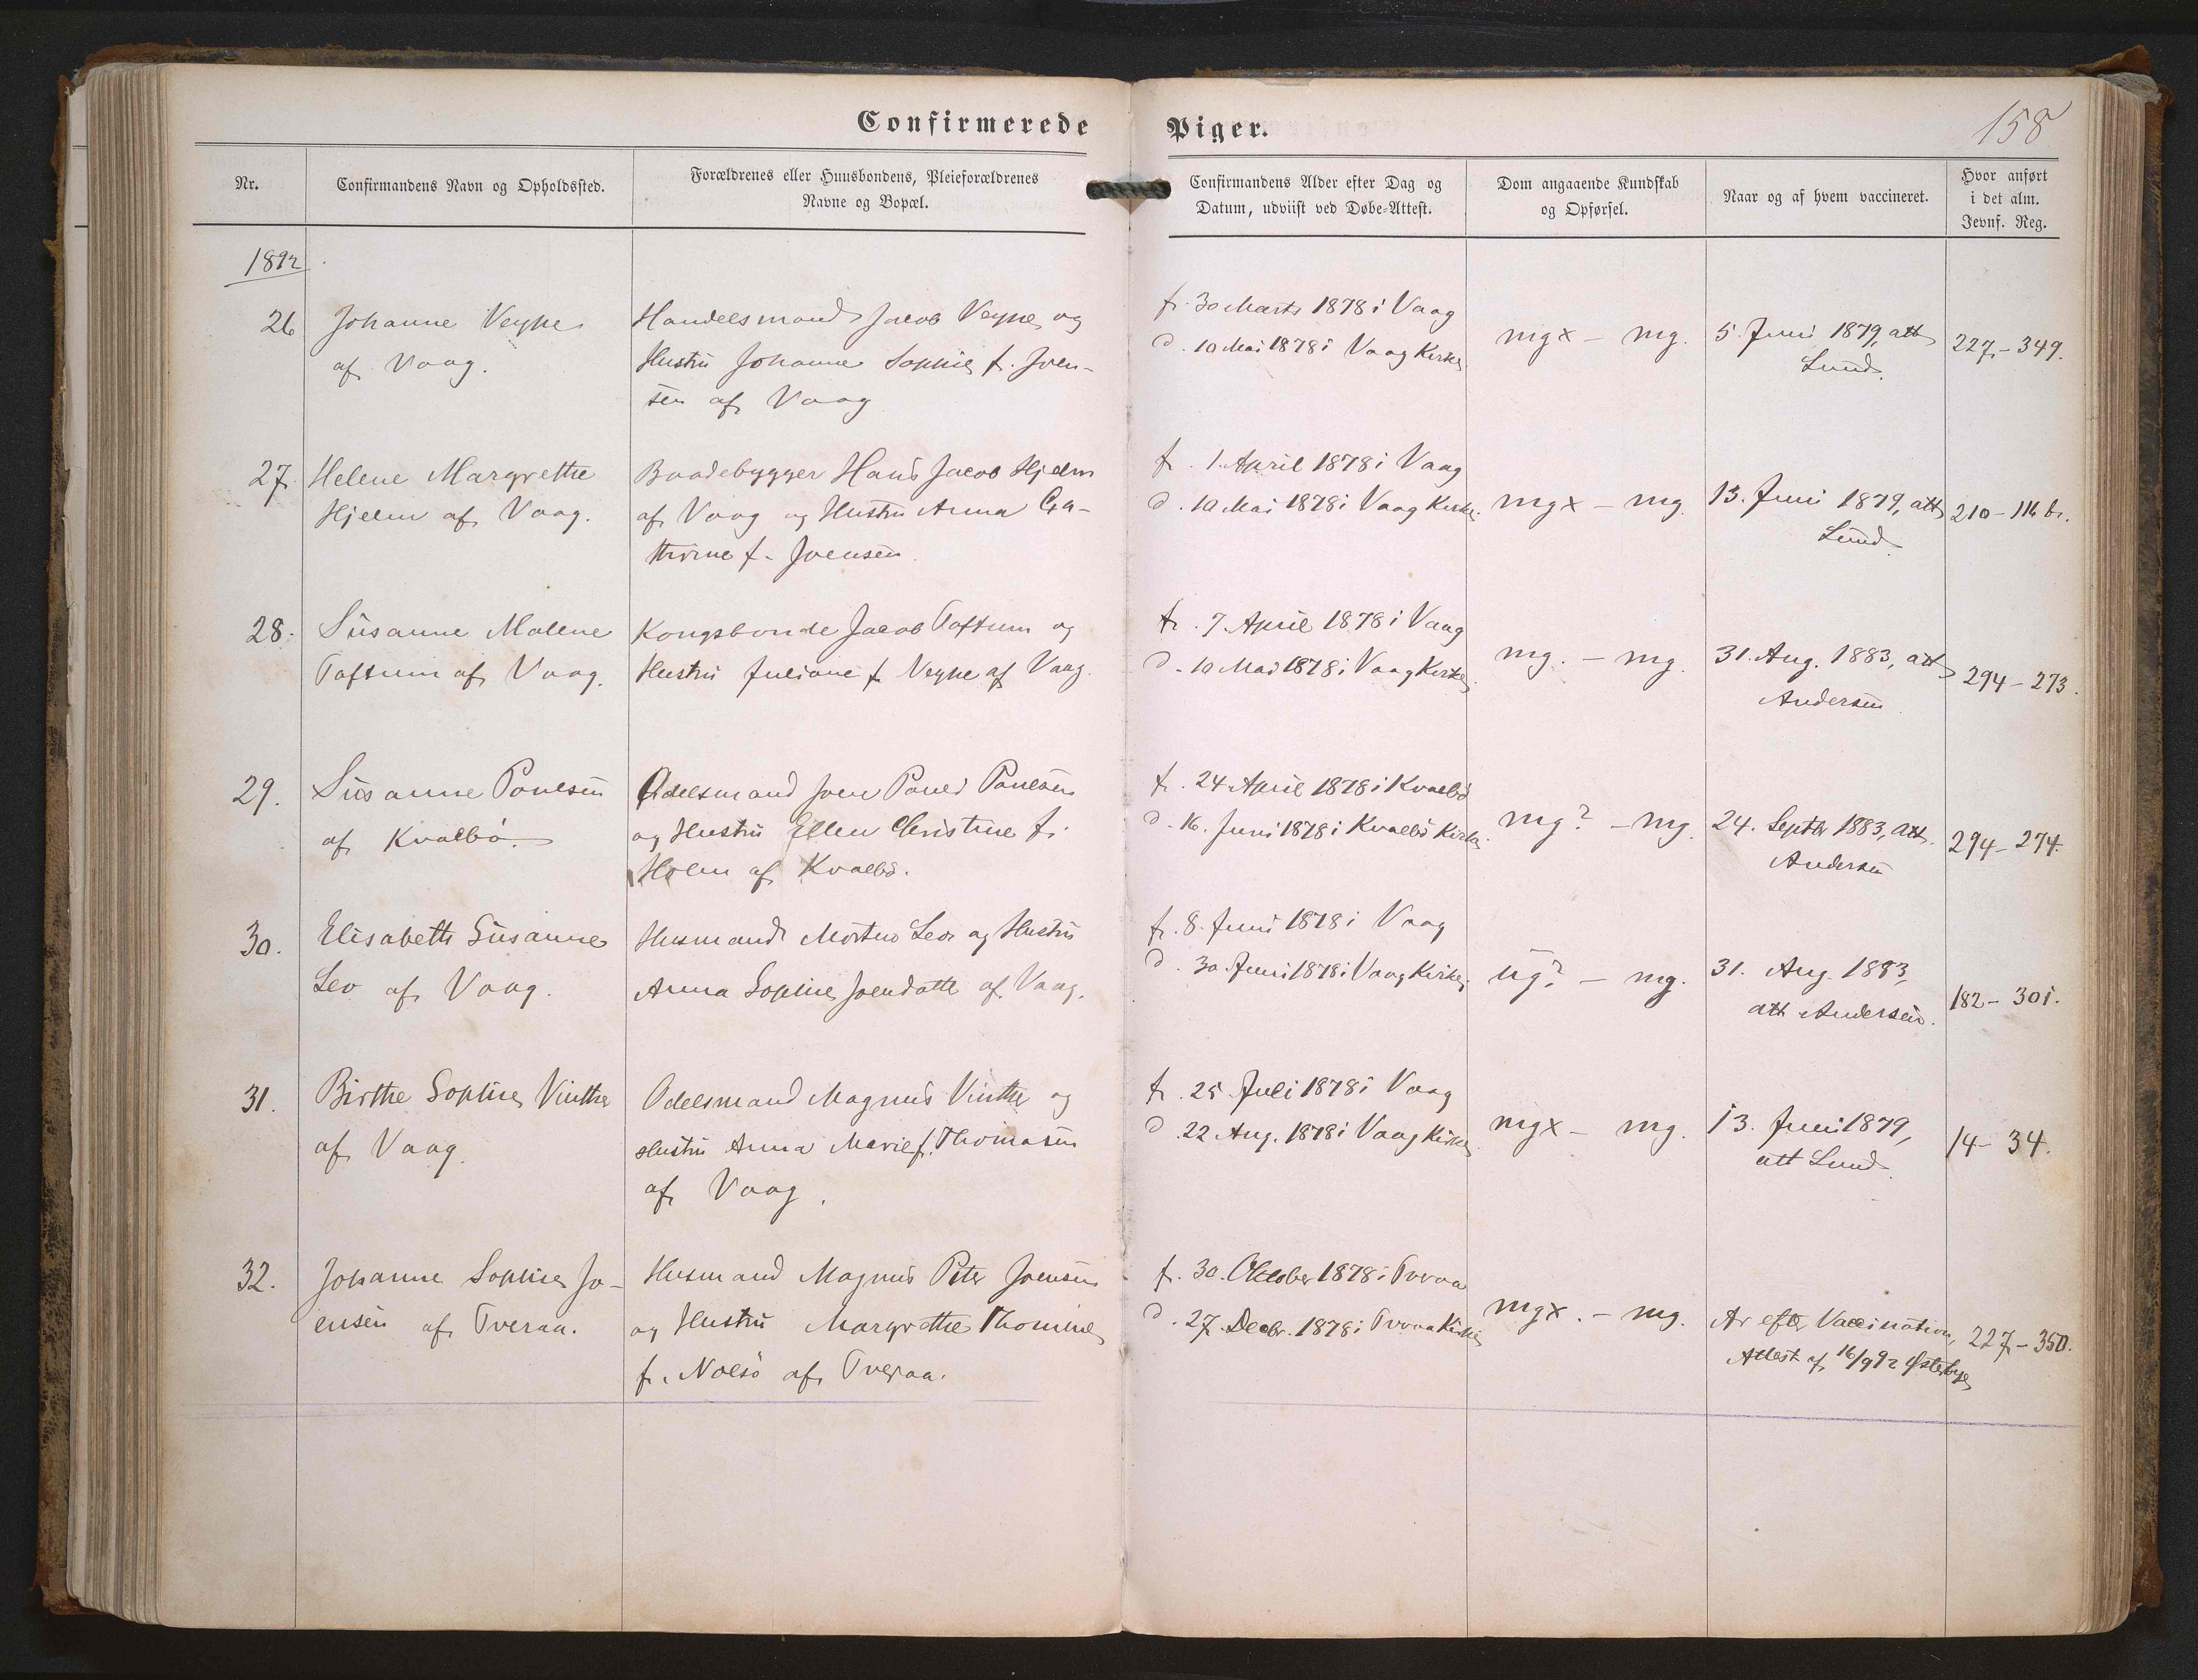 Confirmerede Piger.
158
Nr.
Confirmandens Navn og Opholdssted.
Forældrenes eller Huusbondens, Pleieforældrenes
Navne og Bopæl.
Confirmandens Alder efter Dag og
Datum, udviist ved Døbe-Attest.
Dom angaaende Kundskab
og Opførsel.
Naar og af hvem vaccineret.
Hvor anført
i det alm.
Jevnf. Reg.
1892
26
Johanne Veyhe
af Vaag.
Handelsmand Jacob Veyhe og
Hustru Johanne Sophie f. Joen-
sen af Vaag
f. 30 Marts 1878 i Vaag
d. 10 Mai 1878 i Vaag Kirke
mgx - mg.
5. Juni 1879, att
Lund.
227 - 349.
27.
Helene Margrethe
Hjelm af Vaag.
Baadebygger Hans Jacob Hjelm
af Vaag og Hustru Anna Ca-
thrine f. Joensen.
f. 1. April 1878 i Vaag
d. 10 Mai 1878 i Vaag Kirke.
mgx - mg.
13. Juni 1879, att
Lund.
210 - 114 b.
28.
Susanne Malene
Toftum af Vaag.
Kongsbonde Jacob Toftum og
Hustru Juliane f. Veyhe af Vaag.
f. 7. April 1878 i Vaag
d. 10 Mai 1878 i Vaag Kirke.
mg. - mg.
31. Aug. 1883, att
Andersen
294 - 273.
29.
Susanne Poulsen
af Kvalbø.
Odelsmand Joen Poul Poulsen
og Hustru Ellen Christine f.
Holm af Kvalbø.
f. 24 April 1878 i Kvalbø
d. 16. Juni 1878 i Kvalbø Kirke.
mg? - mg.
24. Septbr 1883, att.
Andersen
294 - 274.
30.
Elisabeth Susanne
Lev af Vaag.
Husmand Mortan Lev og Hustru
Anna Sophie Joensdatter af Vaag.
f. 8. Juni 1878 i Vaag
d. 30 Juni 1878 i Vaag Kirke,
ug? - mg.
31. Aug. 1883,
att Andersen.
182 - 301.
31.
Birthe Sophie Vinther
af Vaag.
Odelsmand Magnus Vinther og
Hustru Anna Marie f. Thomasen
af Vaag.
f. 25 Juli 1878 i Vaag
d. 22 Aug. 1878 i Vaag Kirke
mgx - mg.
13. Juni 1879,
att Lund.
14 - 34.
32.
Johanne Sophie Jo-
ensen af Tveraa.
Husmand Magnus Peter Joensen
og Hustru Margrethe Thomine
f. Nolsø af Tveraa.
f. 30. Oktober 1878 i Tveraa
d. 27. Decbr. 1878 i Tveraa Kirke
mgx. - mg.
Ar efter Vaccination,
Attest af 16/9 92 Østerbye
227 - 350.